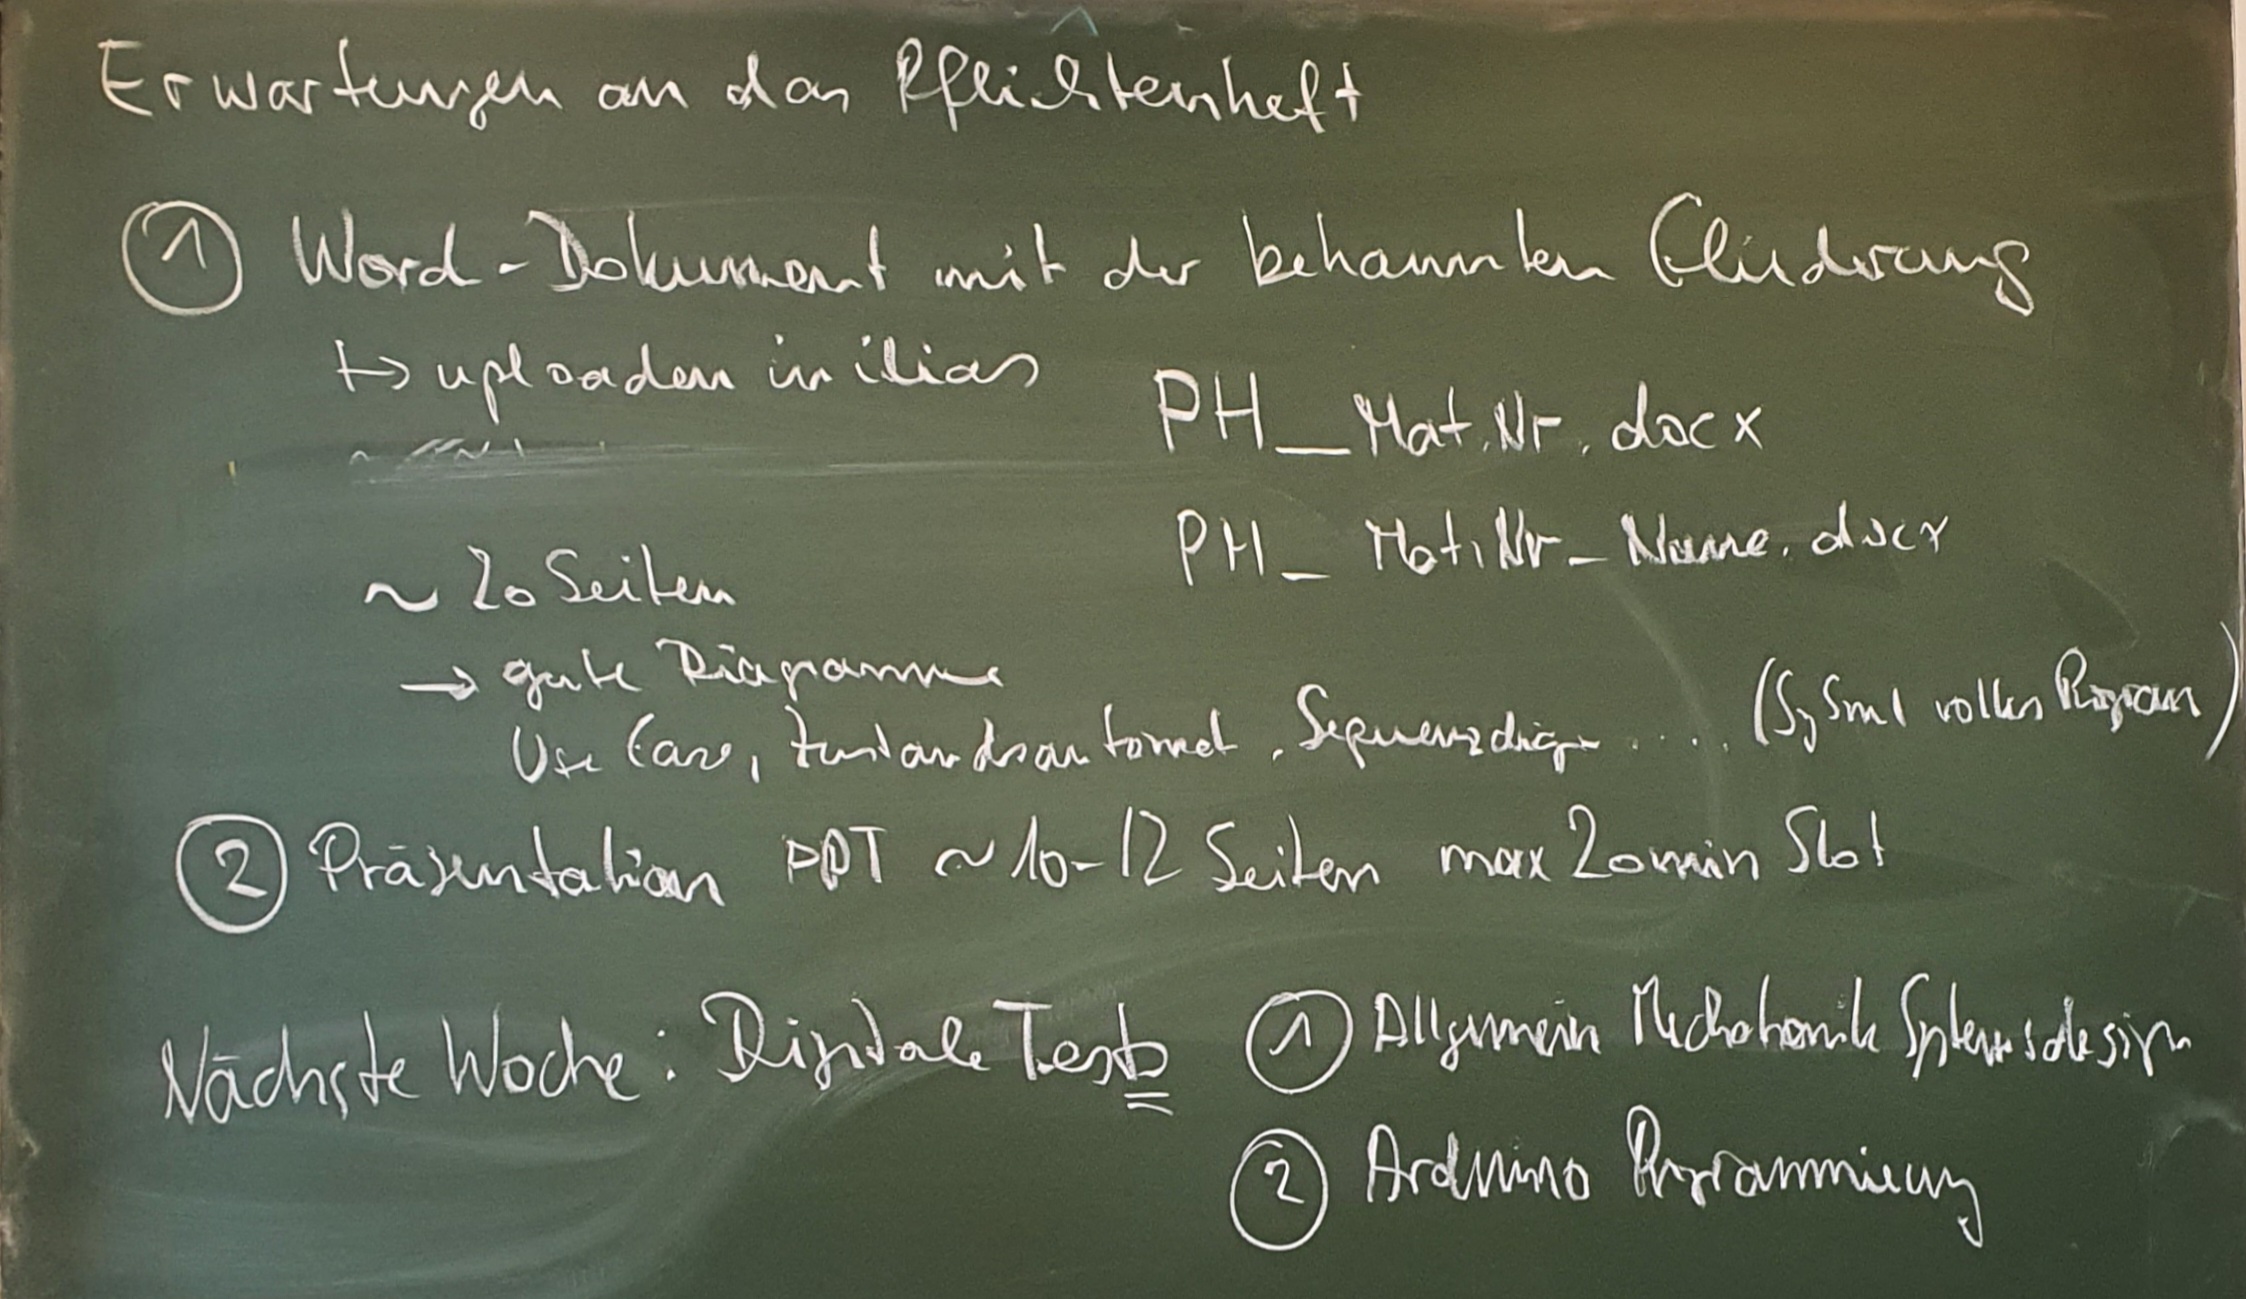 Erwartungen an das Pflichtenheft
① Word-Dokument mit der bekannten Gliederung
↦ uploaden in ilias
PH_Mat.Nr.docx
PH_Mat.Nr_Name.docx
~ 20 Seiten
→ gute Diagramme
Use Case, Zustandsautomat, Sequenzdiagr..... (SySml volles Program)
② Präsentation PPT ~ 10-12 Seiten max 20min Slot
Nächste Woche: Digitale Tests ① Allgemein Mechatronik Systemsdesign
② Arduino Programmierung